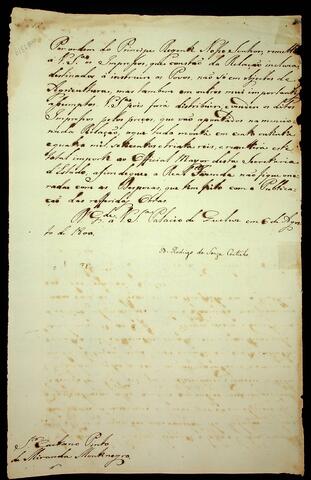 Por ordem do Principe Regente Nosso Senhor, remetto
a V. S.ª os Impressos, que constão da Relação incluza,
destinados a instruir os Povos, não só em objectos de
Agricultura, mas tambem em outros mui importantes
assumptos. V. S.ª pois fará distribuir, e vender os ditos
Impressos pelos preços, que vão apontados na mencio-
nada Relação, o que tudo monta em cento e oitenta
e quatro mil, oitocentos e trinta reis, e remetterá este
total importe ao Official Maior desta Secretaria
d'Estado, afim de que a Real Fazenda não fique one-
rada com as Despezas, que tem feito com a Publica-
ção das refferidas Obras.
D.s G.de a V. S.ª Palacio de Queluz em 6 de Agos-
to de 1800.
D. Rodrigo de Souza Coutinho
S.r Caetano Pinto
de Miranda Montenegro